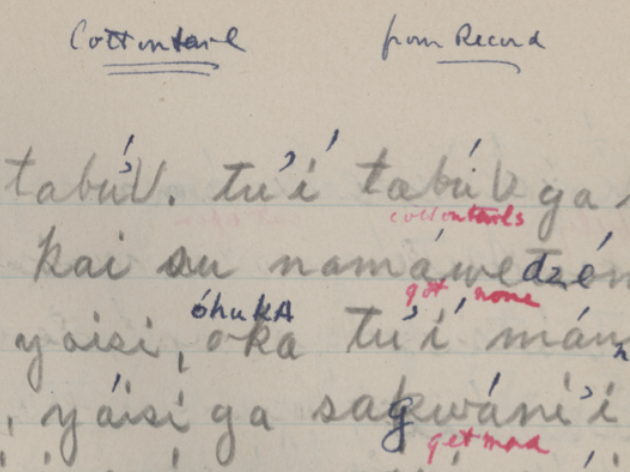 Cottontail from Record
tabú'U. tú'í tabú'U ga
cottontails
kai su namáwedzé
got none
óhukA
yaisi, oka tú'í mán
, yáisi ga sagwáni'i
get mad